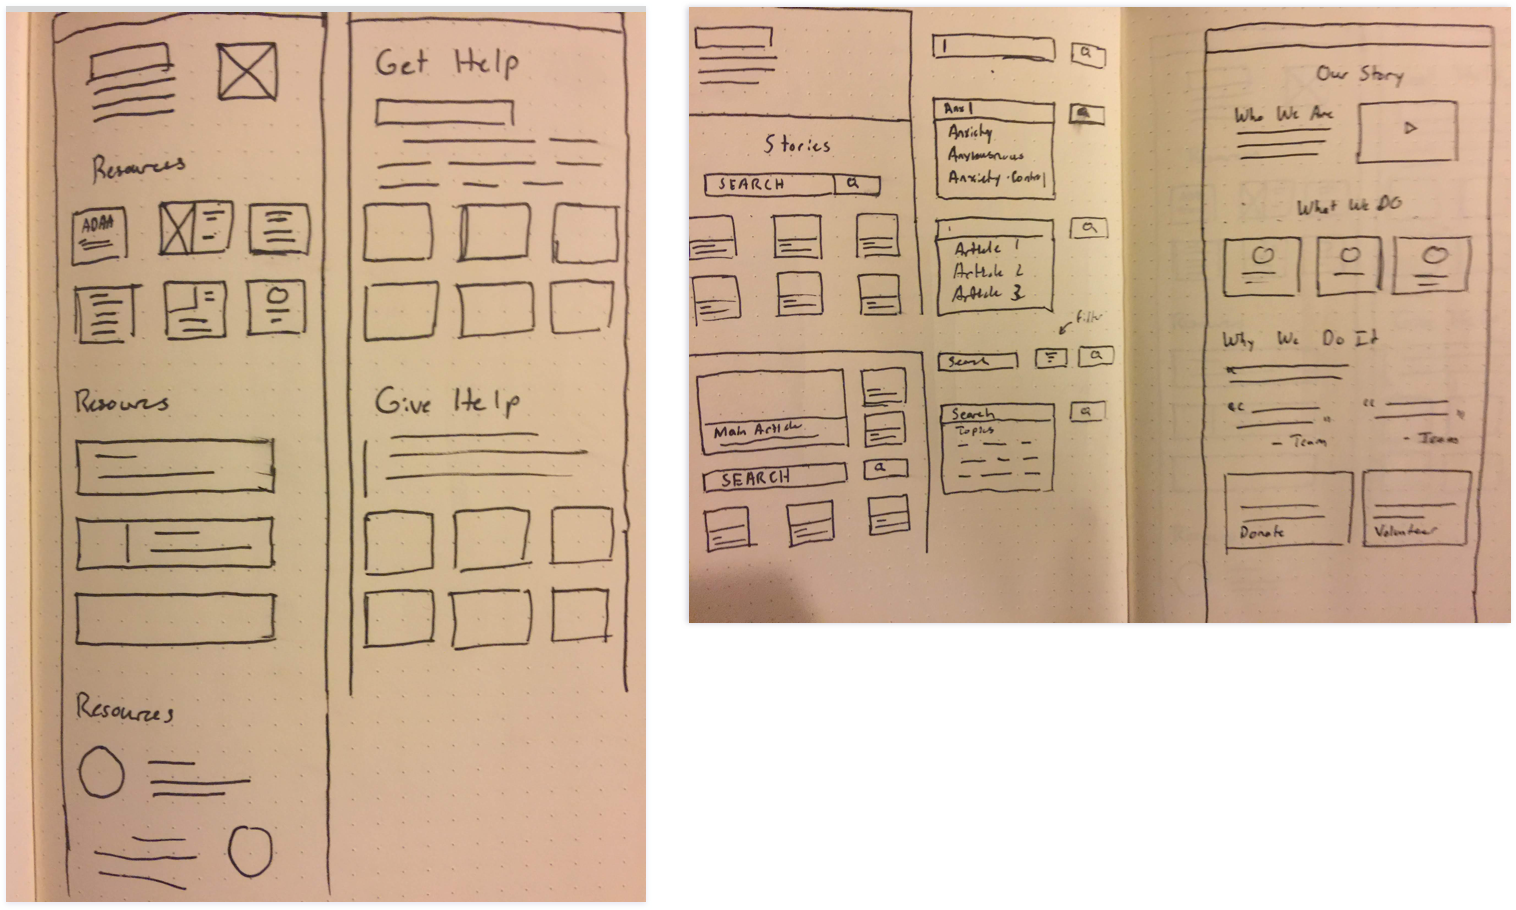 Resources
ADAA
Resoures
Resources
Get Help
Give Help
Stories
SEARCH
Main Article
SEARCH
Anx|
Anxiety
Anxiety Control
Article 1
Article 2
Article 3
filter
Search
Search
Topics
Our Story
Who We Are
What We DO
Why We Do It
“
“ ”
- Team
“ ”
- Team
Donate
Volunteer